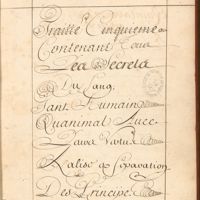 Traitté Cinquieme
Contenant Tous
Les Secrets
Du Sang
Tant Humain
Quanimal Avec
Leurs Vertus
Des Principes